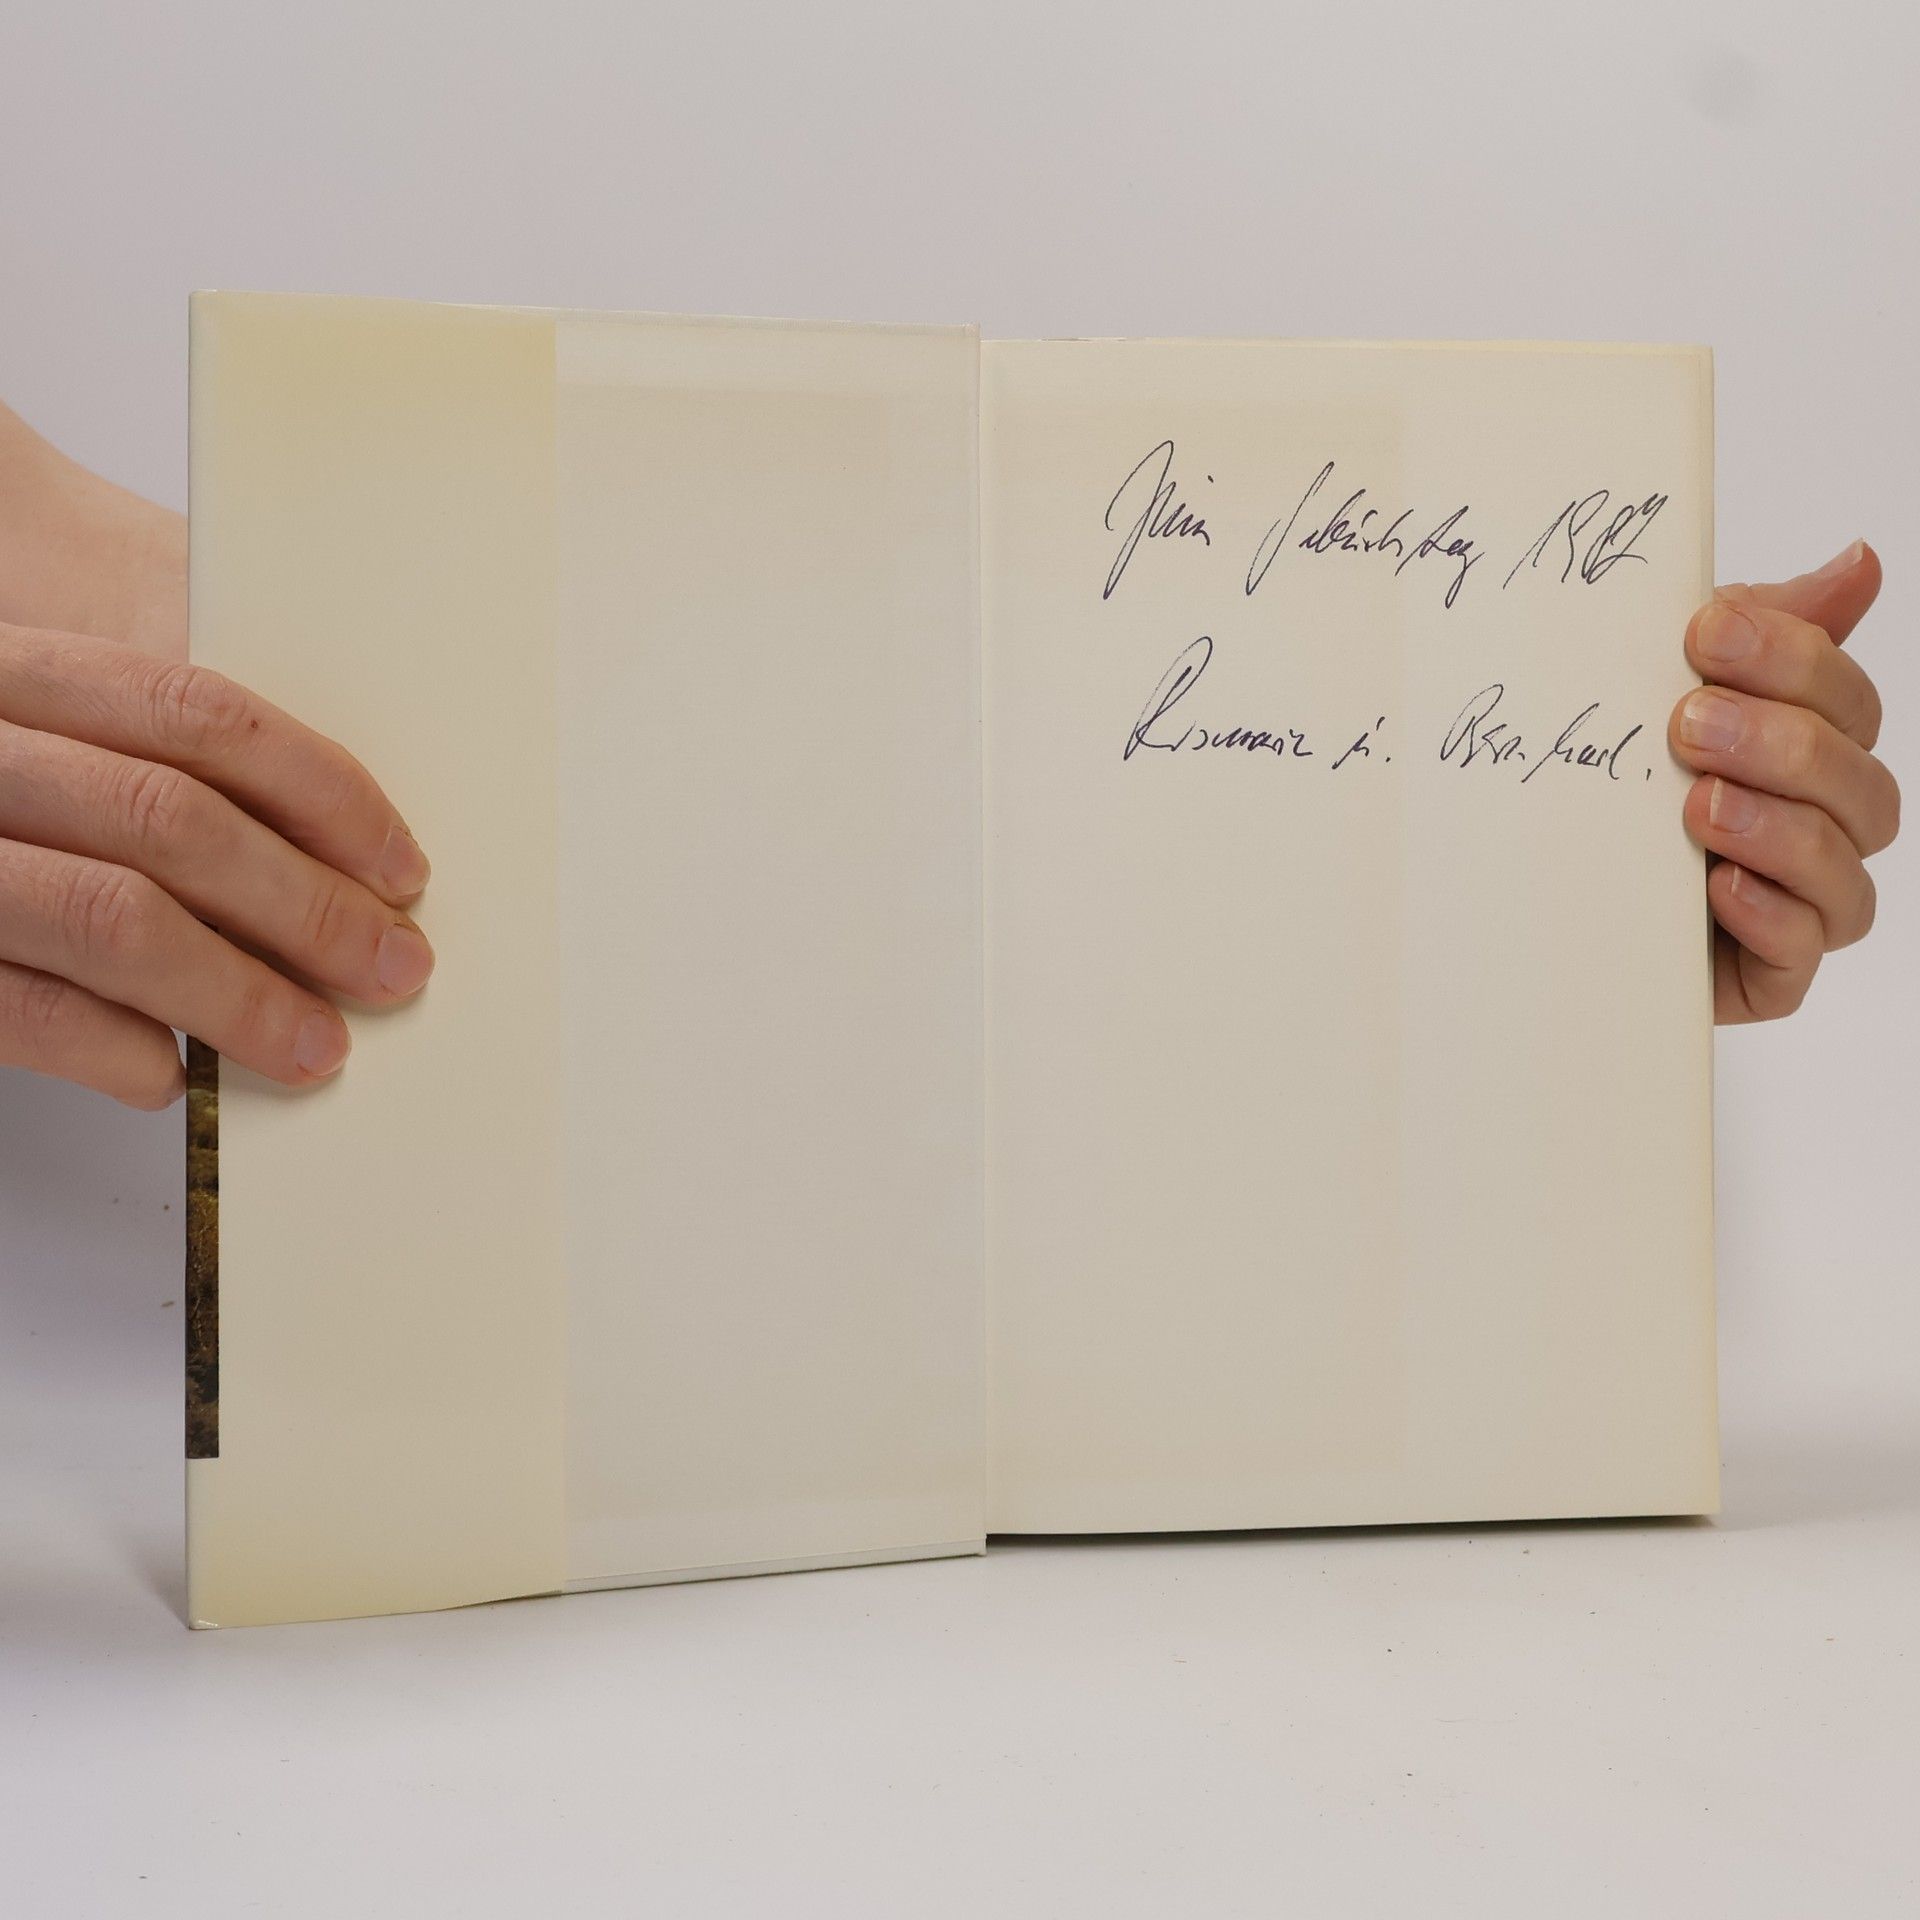 Zum Geburtstag 1987
Rosemarie u. Bernhard.